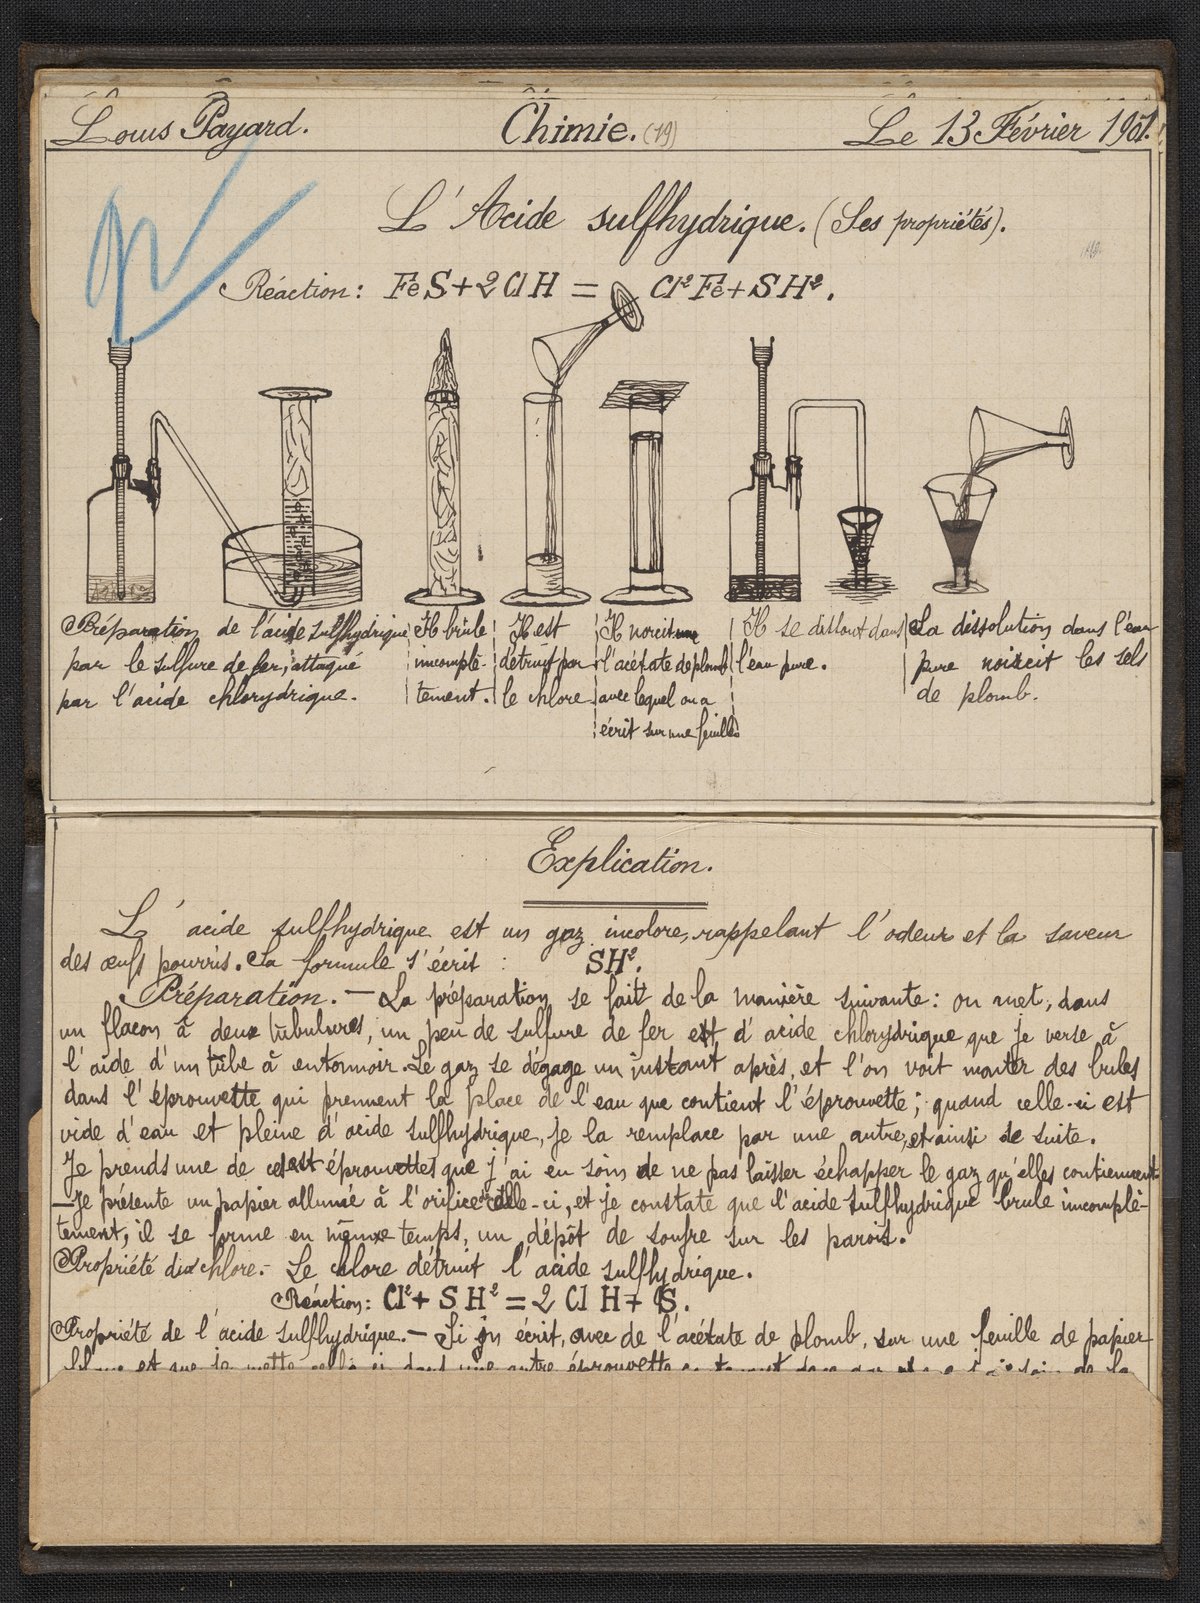 Louis Payard. Chimie. (19) Le 13 Février 1901.
L'Acide sulfhydrique. (Ses propriétés).
Réaction: FeS + 2ClH = Cl²Fe + SH².
Préparation de l'acide sulfhydrique
par le sulfure de fer, attaqué
par l'acide chlorydrique.
Il brûle
incomplè-
tement.
Il est
détruit par
le chlore.
Il noircit
l'acétate de plomb
avec lequel on a
écrit sur une feuille
Il se dissout dans
l'eau pure.
La dissolution dans l'eau
pure noircit les sels
de plomb.
Explication.
L'acide sulfhydrique est un gaz incolore, rappelant l'odeur et la saveur
des œufs pourris. Sa formule s'écrit : SH².
Préparation. — La préparation se fait de la manière suivante: on met, dans
un flacon à deux tubulures, un peu de sulfure de fer et d'acide chlorydrique que je verse à
l'aide d'un tube à entonnoir. Le gaz se dégage un instant après, et l'on voit monter des bules
dans l'éprouvette qui prennent la place de l'eau que contient l'éprouvette; quand celle-ci est
vide d'eau et pleine d'acide sulfhydrique, je la remplace par une autre, et ainsi de suite.
Je prends une de ces éprouvettes que j'ai eu soin de ne pas laisser échapper le gaz qu'elles contiennent
— Je présente un papier allumé à l'orifice de celle-ci, et je constate que l'acide sulfhydrique brule incomplè-
tement; il se forme en même temps, un dépôt de soufre sur les parois.
Propriété du chlore. — Le chlore détruit l'acide sulfhydrique.
Réaction: Cl² + SH² = 2 Cl H + S.
Propriété de l'acide sulfhydrique. — Si on écrit, avec de l'acétate de plomb, sur une feuille de papier
et que je mette celle-ci dans une autre éprouvette